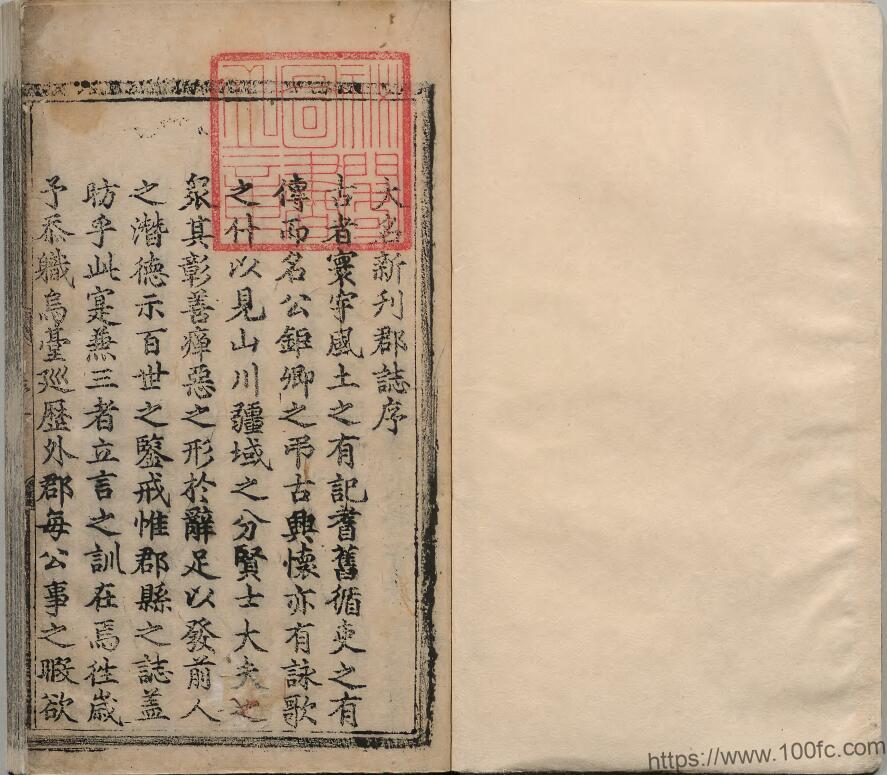 大名新刋郡誌序
古者寰宇風土之有記耆舊循吏之有
傳而名公鉅卿之弔古興懷亦有詠歌
之什以見山川疆域之分賢士大夫之
衆其彰善癉惡之形於辭足以發前人
之潛德示百世之鑒戒惟郡縣之誌盖
昉乎此寔兼三者立言之訓在焉徃嵗
予忝職烏臺廵歷外郡每公事之暇欲
https://www.100fc.com